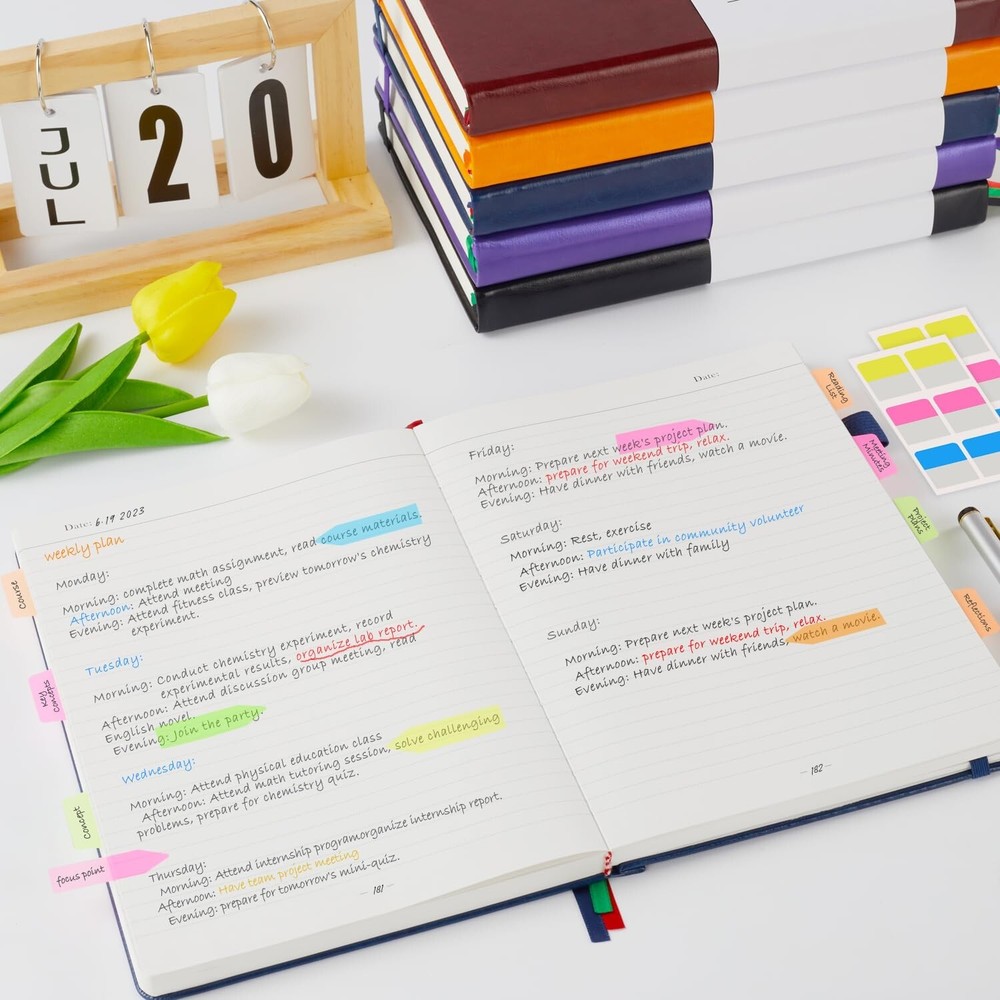 JUL 20
Date: 6.19 2023
weekly plan
Monday:
Morning: complete math assignment, read course materials.
Afternoon: Attend meeting
Evening: Attend fitness class, preview tomorrow's chemistry
experiment.
Tuesday:
Morning: Conduct chemistry experiment, record
experimental results, organize lab report.
Afternoon: Attend discussion group meeting, read
English novel.
Evening: Join the party.
Wednesday:
Morning: Attend physical education class
Afternoon: Attend math tutoring session, solve challenging
problems, prepare for chemistry quiz.
Thursday:
Morning: Attend internship programorganize internship report.
Afternoon: Have team project meeting
Evening: prepare for tomorrow's mini-quiz.
181
Course
Key Concepts
Concept
focus point
Date:
Friday:
Morning: Prepare next week's project plan.
Afternoon: prepare for weekend trip, relax.
Evening: Have dinner with friends, watch a movie.
Saturday:
Morning: Rest, exercise
Afternoon: Participate in community volunteer
Evening: Have dinner with family
Sunday:
Morning: Prepare next week's project plan.
Afternoon: prepare for weekend trip, relax.
Evening: Have dinner with friends, watch a movie.
182
Reading
List
Meeting
Minutes
Project
plans
Reflections